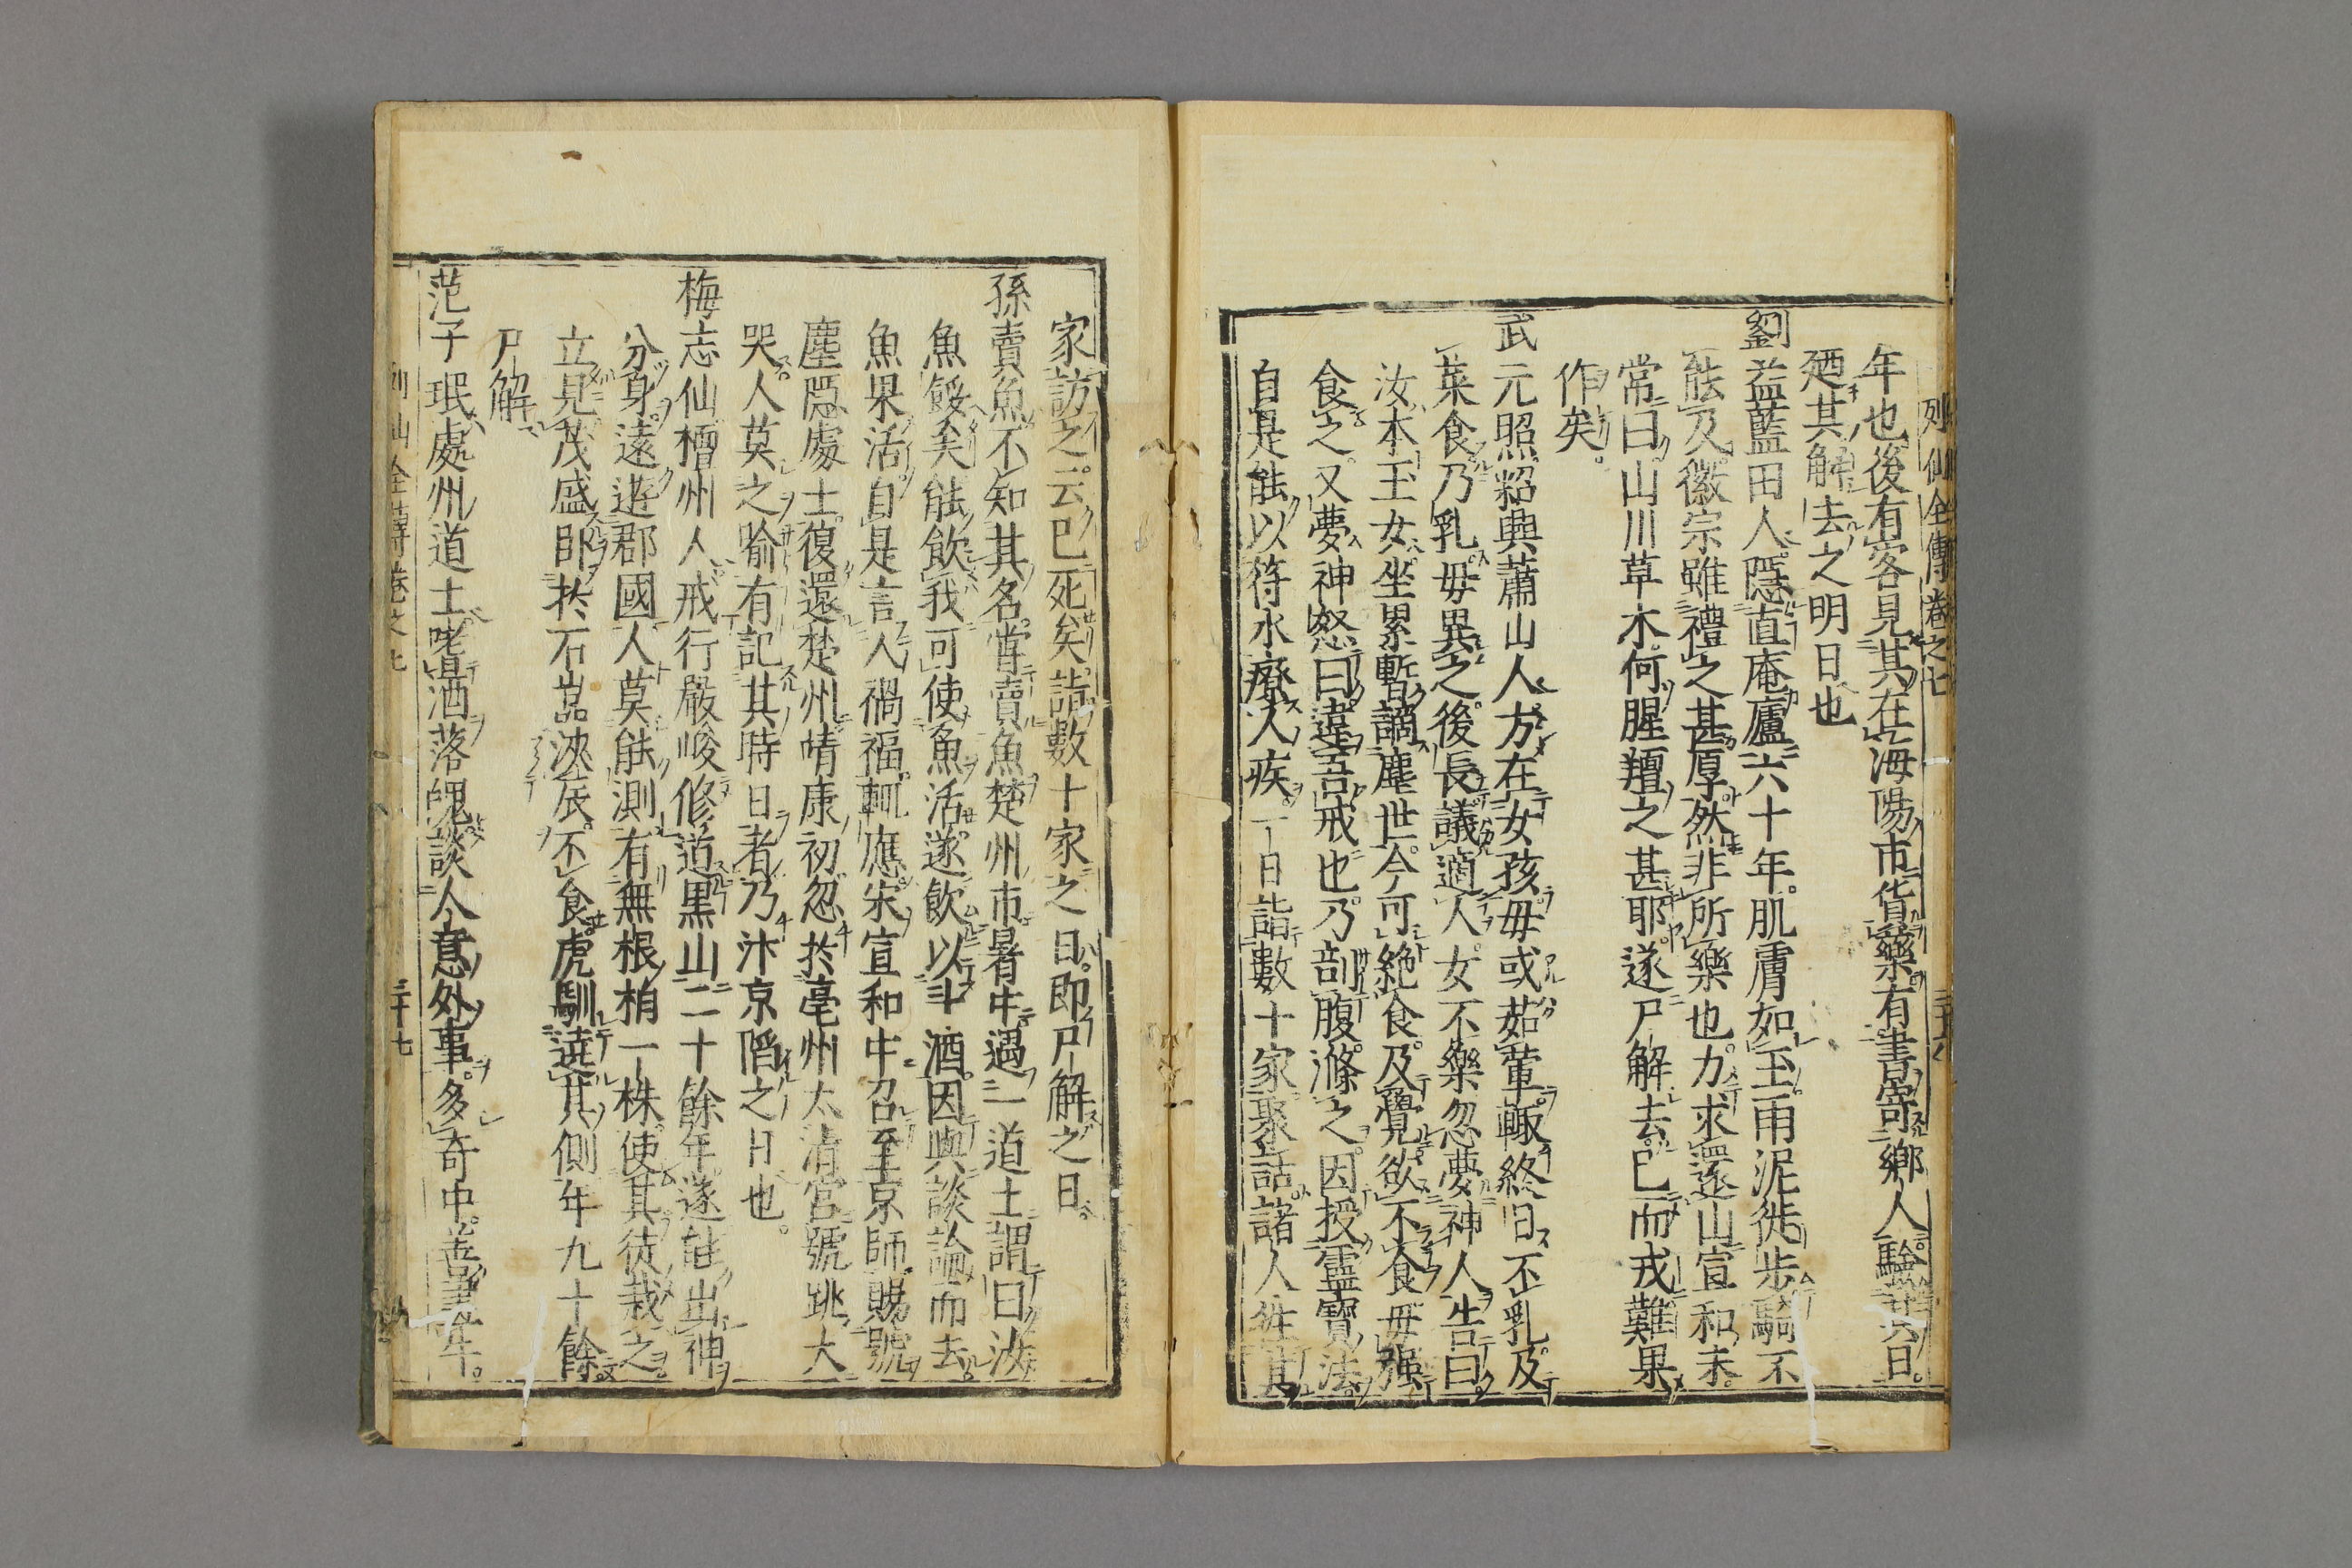 列仙全傳卷之七
年也後有客見其在海陽市貨藥有書寄鄉人驗其日
廼其解去之明日也
劉益藍田人隱直庵廬六十年肌膚如玉雨泥徙步騎不
能及徽宗雖禮之甚厚然非所樂也力求還山宣和末
常曰山川草木何腥羶之甚耶遂尸解去已而戎難果
作矣
武元照紹興蕭山人方在女孩毋或茹葷輙終日不乳及
菜食乃乳毋異之後長議適人女不樂忽夢神人告曰
汝本玉女坐累暫謫塵世今可絶食及覺欲不食毋强
食之又夢神怒曰違吾戒也乃剖腹滌之因授靈寶法
自是能以符水療人疾一日詣數十家聚話諸人往其
家訪之云已死矣詣數十家之日即尸解之日
孫賣魚不知其名嘗賣魚楚州市暑中遇一道士謂曰汝
魚餒矣能飲我可使魚活遂飲以斗酒因與談論而去
魚果活自是言人禍福輒應宋宣和中召至京師賜號
塵隱處士復還楚州靖康初忽於亳州太淸宮號跳大
哭人莫之喻有記其時日者乃汴京陷之日也
梅志仙檀州人戒行嚴峻修道黒山二十餘年遂能出神
分身遠遊郡國人莫能測有無根梢一株使其徒栽之
立見茂盛卧於石嵓浹辰不食虎馴遶其側年九十餘
尸解
范子珉處州道士嗜酒落魄談人意外事多奇中善畫牛
列仙全傳卷之七
三十七